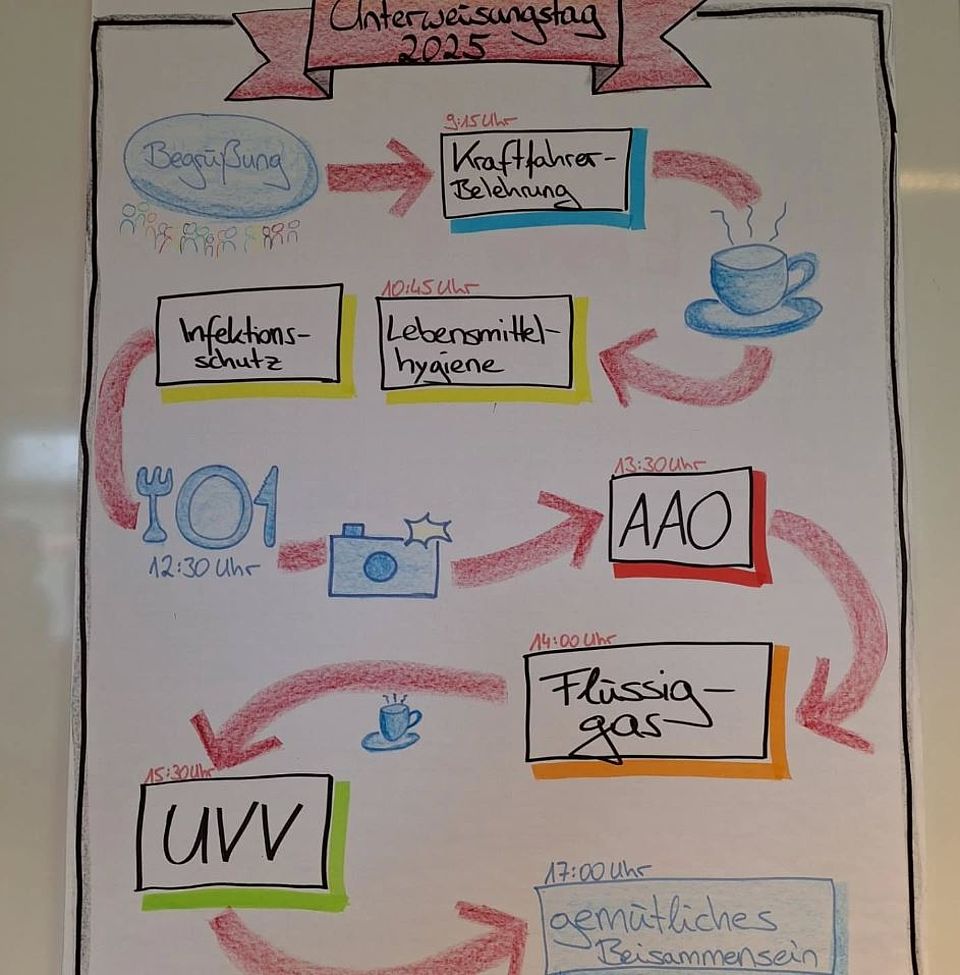 Unterweisungstag
2025
Begrüßung
9:15 Uhr
Kraftfahrer-
Belehrung
10:45 Uhr
Lebensmittel-
hygiene
Infektions-
schutz
12:30 Uhr
13:30 Uhr
AAO
14:00 Uhr
Flüssig-
gas
15:30 Uhr
UVV
17:00 Uhr
gemütliches
Beisammensein